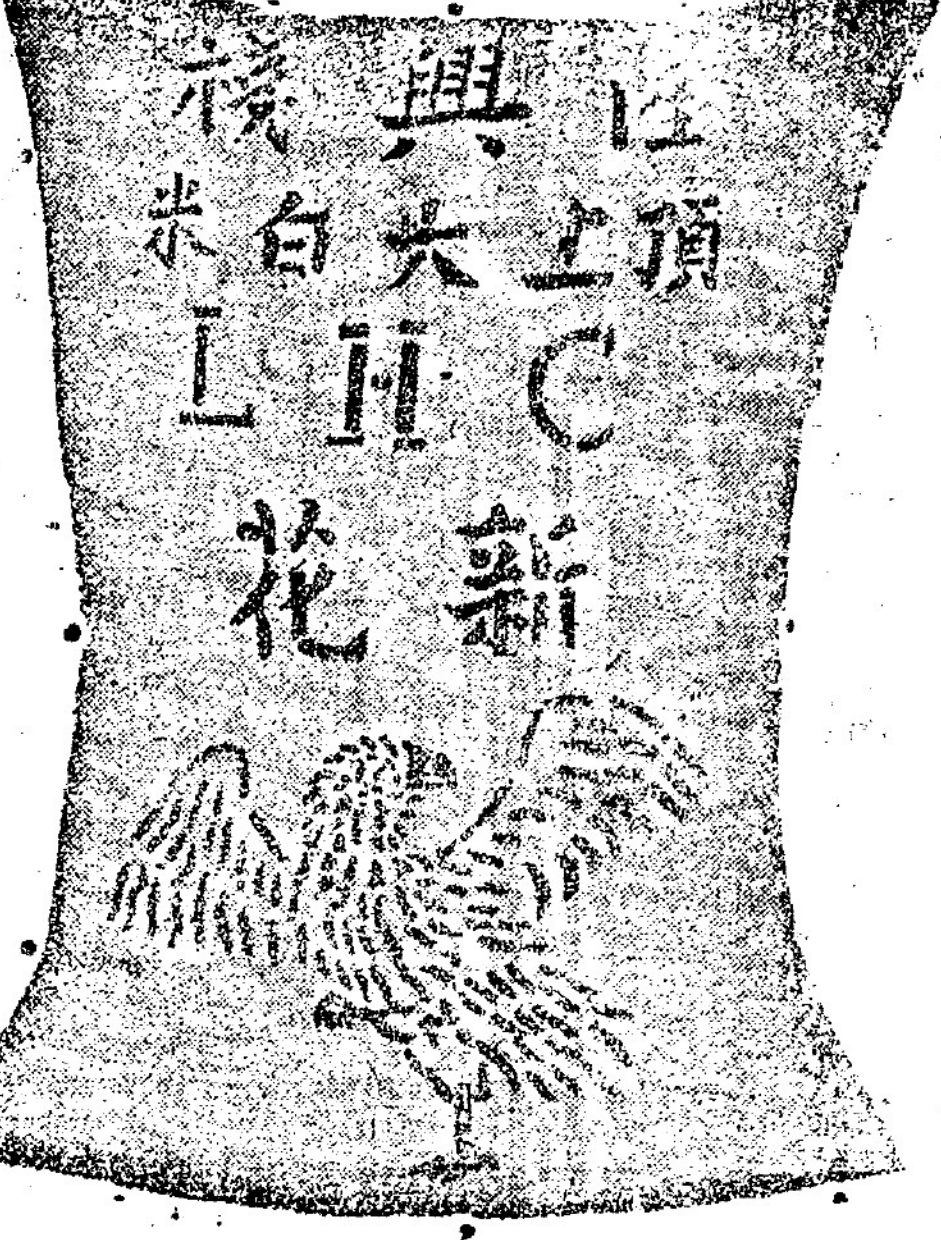 興棧
頂上大白米
L H C
新花